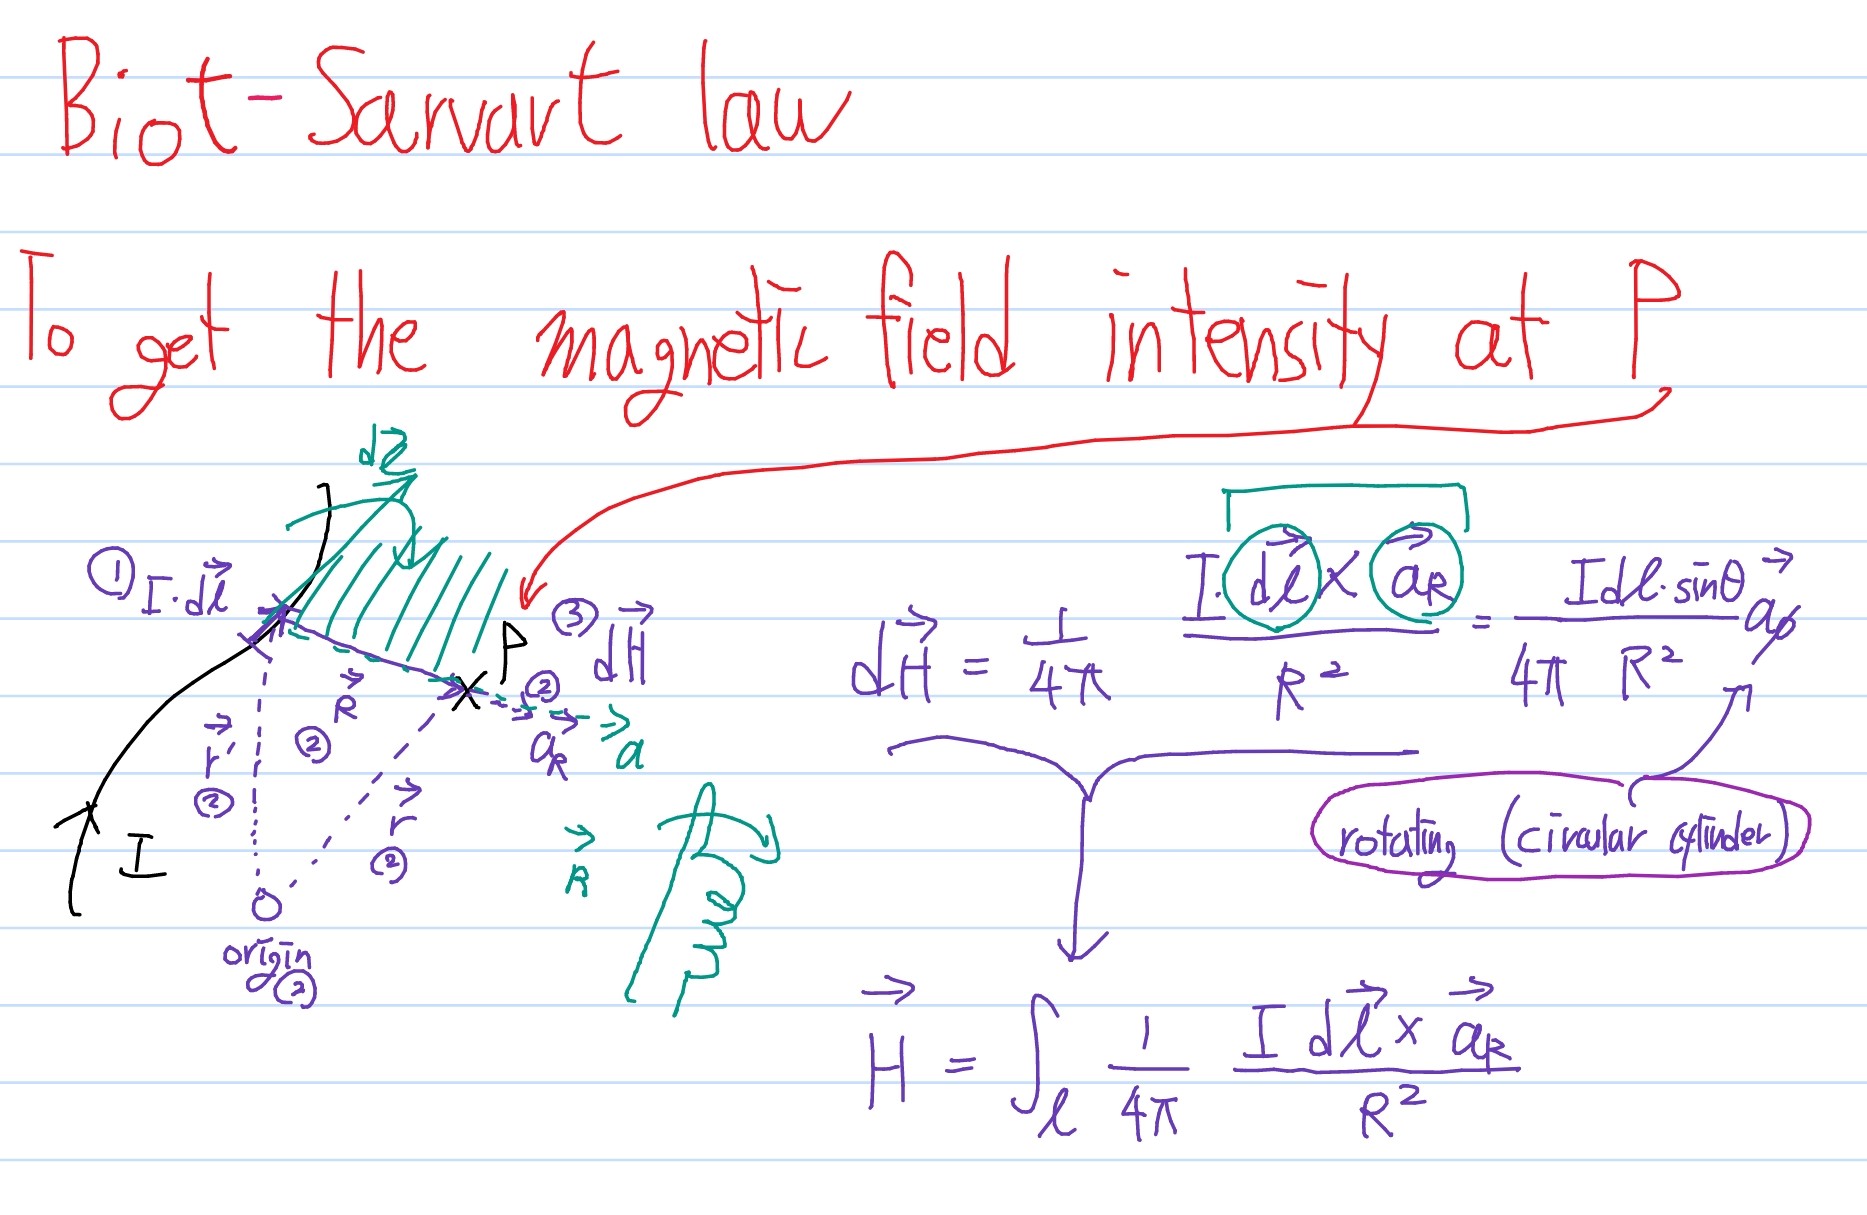 Biot-Sarvart law
To get the magnetic field intensity at P
dl⃗
① I·dl⃗
P
③ dH⃗
R⃗
②
②
a⃗_R
a⃗
r⃗'
②
r⃗
②
I
origin
②
R⃗
dH⃗ = 1/4π I·dl⃗ × a⃗_R / R² = Idl·sinθ / 4π R² a⃗_φ
rotating (circular cylinder)
H⃗ = ∫_l 1/4π I dl⃗ × a⃗_R / R²